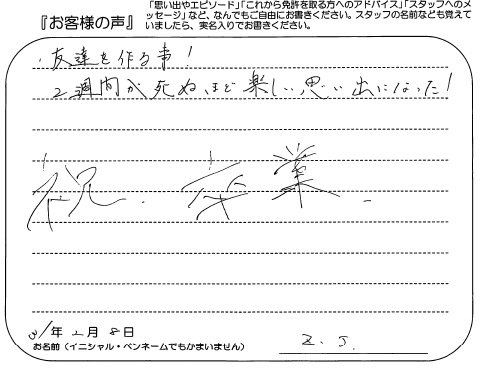 『お客様の声』
「思い出やエピソード」「これから免許を取る方へのアドバイス」「スタッフへのメ
ッセージ」など、なんでもご自由にお書きください。スタッフの名前なども覚えて
いましたら、実名入りでお書きください。
・友達を作る事!
2週間が死ぬほど楽しい思い出になった!
祝.卒業.
31年2月8日
お名前(イニシャル・ペンネームでもかまいません) Z.J.